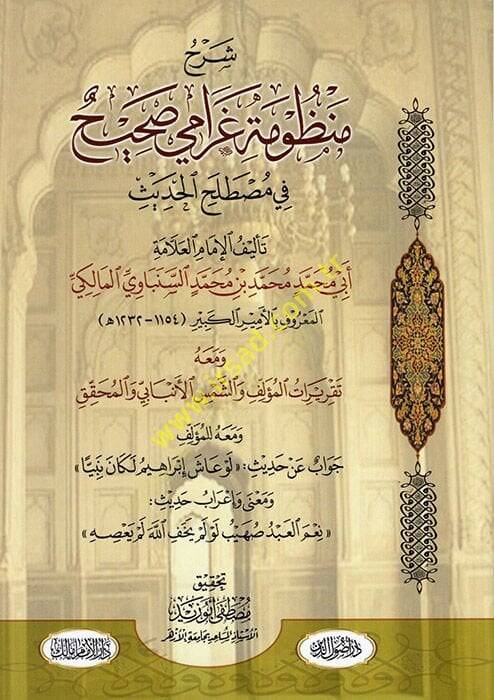 شَرْحُ
مَنْظُومَةِ غَرَامِي صَحِيحٌ
فِي مُصْطَلَحِ الْحَدِيثِ
تَأْلِيفُ الإِمَامِ الْعَلَّامَةِ
أَبِي مُحَمَّدٍ مُحَمَّدِ بْنِ مُحَمَّدٍ السَّنْبَاوِيِّ الْمَالِكِيِّ
الْمَعْرُوفِ بِالأَمِيرِ الْكَبِيرِ (١١٥٤-١٢٣٢هـ)
وَمَعَهُ
تَقْرِيرَاتُ الْمُؤَلِّفِ وَالشَّمْسِ الأَنْبَابِيِّ وَالْمُحَقِّقِ
وَمَعَهُ لِلْمُؤَلِّفِ
جَوَابٌ عَنْ حَدِيثِ: «لَوْ عَاشَ إِبْرَاهِيمُ لَكَانَ نَبِيًّا»
وَمَعْنَى وَإِعْرَابُ حَدِيثِ:
«نِعْمَ الْعَبْدُ صُهَيْبٌ لَوْ لَمْ يَخَفِ اللهَ لَمْ يَعْصِهِ»
تحقيق
مصطفى أبو زيد
الأستاذ المساعد بجامعة الأزهر
دار أصول الدين
دار الإمام مالك